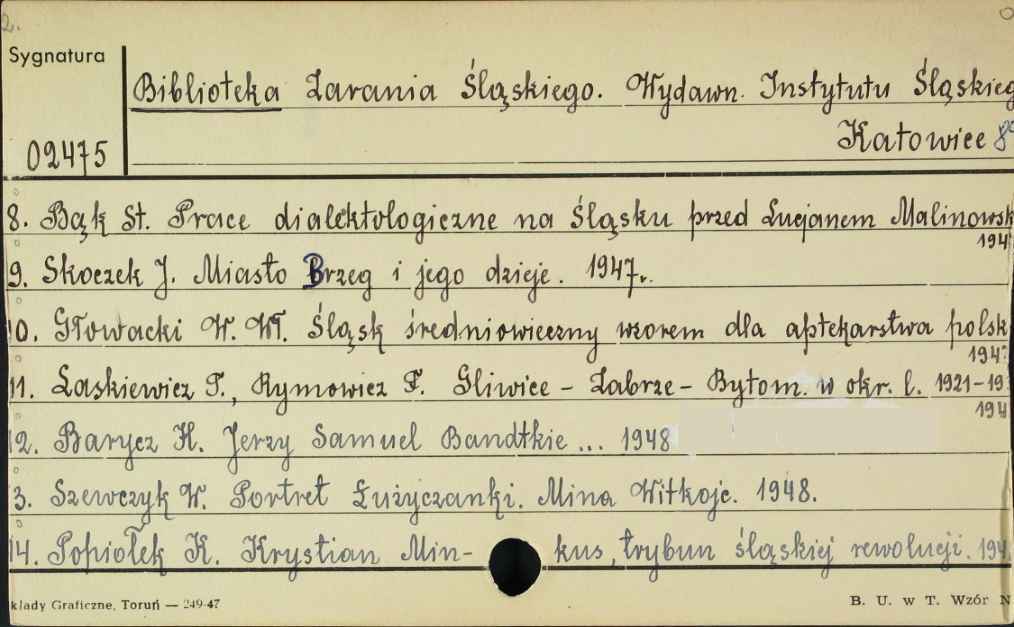 2.
Sygnatura
Biblioteka Zarania Śląskiego. Wydawn. Instytutu Śląskieg
Katowice 8°
02475
8. Bąk St. Prace dialektologiczne na Śląsku przed Lucjanem Malinowsk
194
9. Skoczek J. Miasto Brzeg i jego dzieje. 1947r.
10. Głowacki W. Wł. Śląsk średniowieczny wzorem dla aptekarstwa polsk
194
11. Laskiewicz T., Rymowicz F. Gliwice - Zabrze - Bytom. w okr. l. 1921-19
194
12. Barycz H. Jerzy Samuel Bandtkie ... 1948
13. Szewczyk W. Portret Łużyczanki. Mina Witkojc. 1948.
14. Popiołek K. Krystian Min- kus, trybun śląskiej rewolucji. 194
kłady Graficzne, Toruń — 249-47
B. U. w T. Wzór N